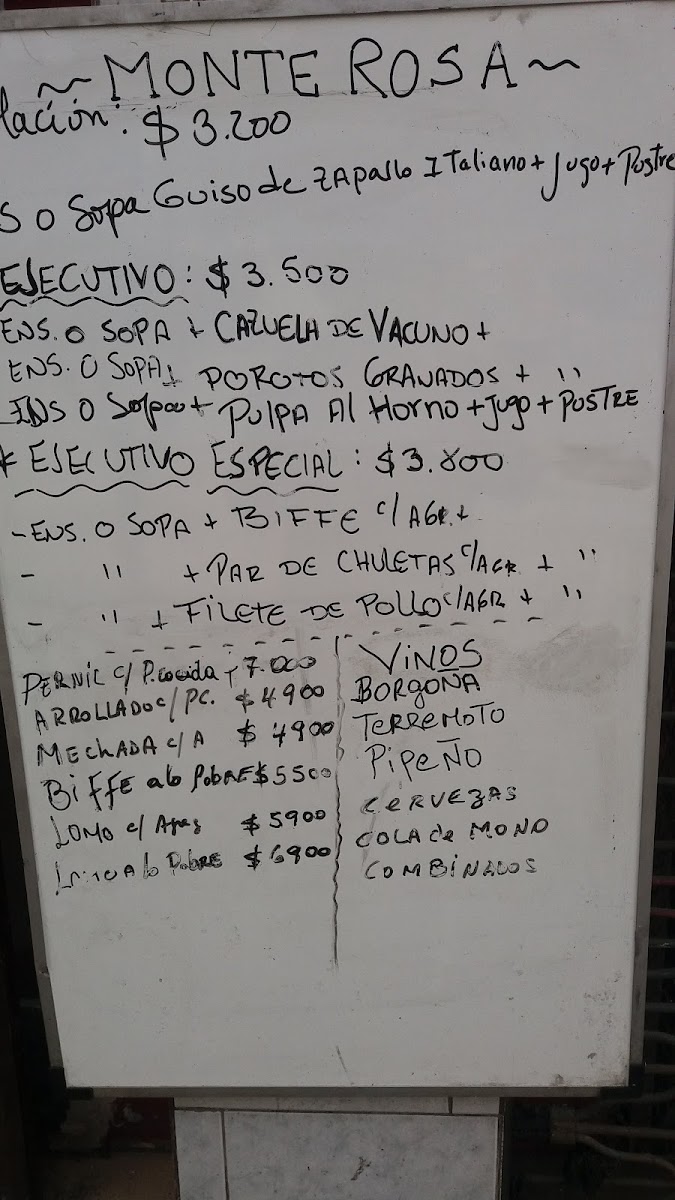 ~ MONTE ROSA ~
lación: $ 3.200
S O Sopa Guiso de ZAPAllo ITaliano + Jugo + Postre
EJECUTIVO: $ 3.500
ENS. O SOPA + CAZUELA DE VACUNO +
ENS. O SOPA + POROTOS GRANADOS + "
ENS O Sopa + PULPA Al Horno + Jugo + POSTRE
* EJECUTIVO ESPECIAL: $ 3.800
- ENS. O SOPA + BIFFE C/AGR. +
- " + PAR DE CHULETAS C/AGR + "
- " + FILETE DE POLLO C/AGR + "
PERNIL C/ P. cocida 7.000
ARROLLADO C/ PC. $ 4900
MECHADA C/A $ 4900
BIFFE a lo PobRE $ 5500
LOMO c/ Agreg $ 5900
Lomo A lo PobRE $ 6900
VINOS
BORGOÑA
TERREMOTO
PIPEÑO
CERVEZAS
COLA de MONO
COMBINADOS